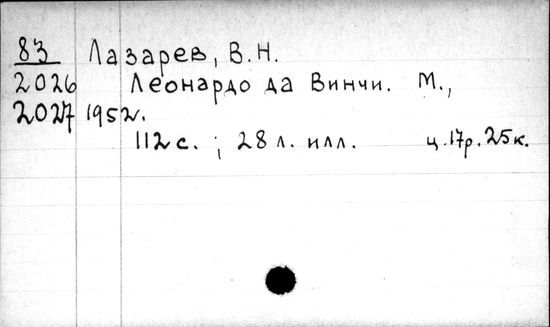 83 Лазарев, В.Н.
2026 Леонардо да Винчи. М.,
2027 1952.
112 с. ; 28 л. илл. ц. 17р. 25к.